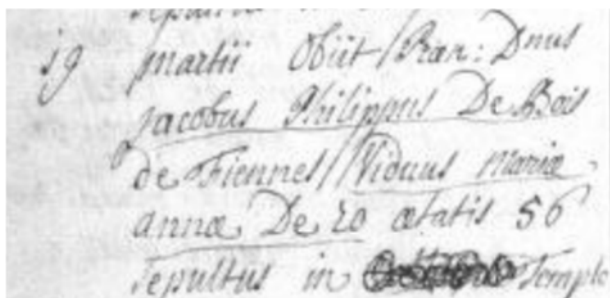 19 martii Obiit Præn: Dnus
Jacobus Philippus De Bois
de Fiennes Viduus Mariæ
annæ De Lo ætatis 56
Sepultus in Templo